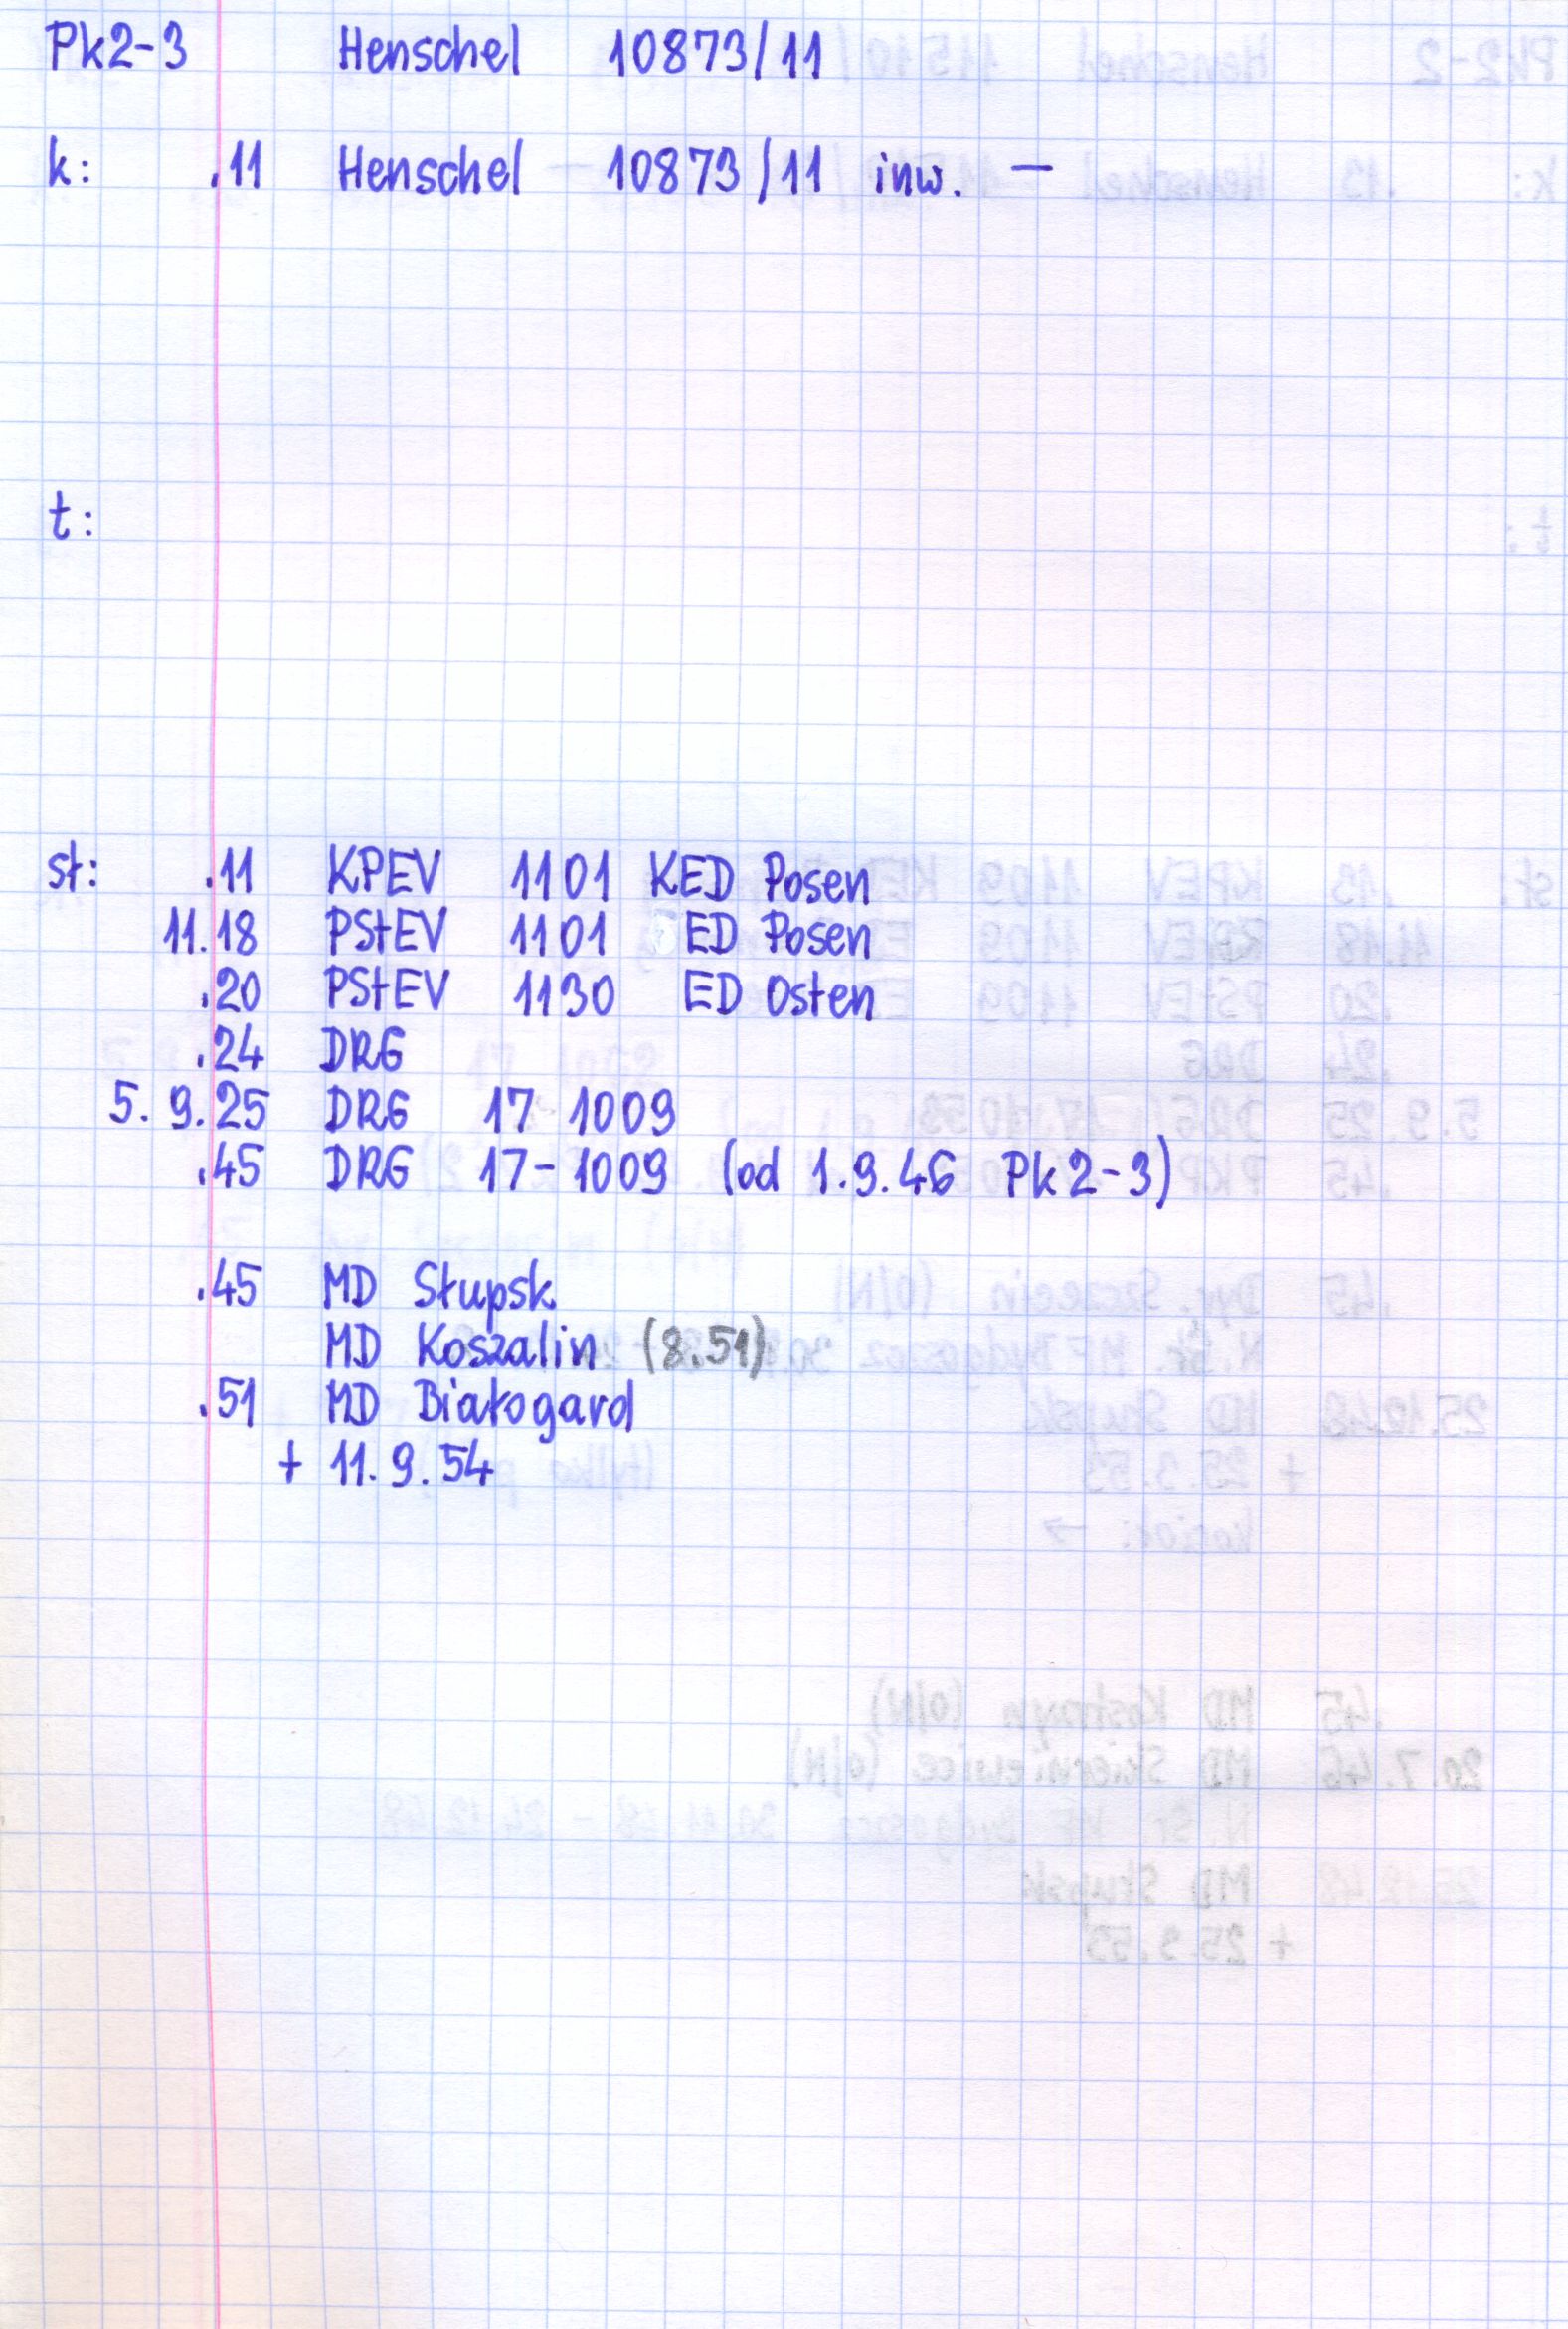 Pk2-3 Henschel 10873/11
k: .11 Henschel 10873/11 inw. —
t:
st: .11 KPEV 1101 KED Posen
11.18 PStEV 1101 ED Posen
.20 PStEV 1130 ED Osten
.24 DRG
5. 9. 25 DRG 17 1009
.45 DRG 17-1009 (od 1.9.46 Pk2-3)
.45 MD Słupsk
MD Koszalin (8.51)
.51 MD Białogard
+ 11.9.54